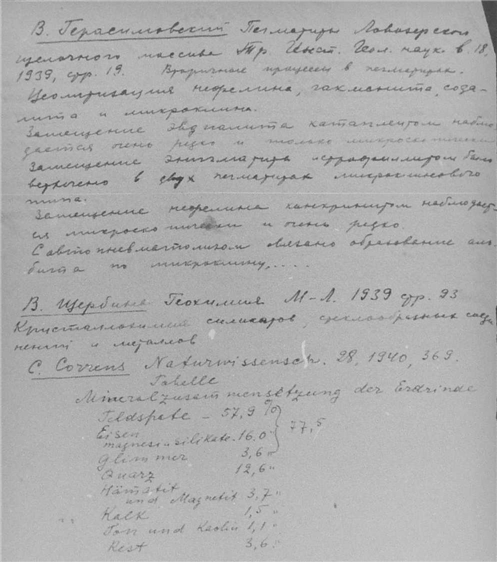 В. Герасимовский Пегматиты Ловозерского
щелочного массива Тр. Инст. Геол. наук в. 18,
1939, стр. 19. Вторичные процессы в пегматитах.
Цеолитизация нефелина, гакманита, сода-
лита и микроклина.
Замещение эвдиалита катаплеитом наблю-
дается очень редко и только микроскопически
Замещение энигматита было
встречено в двух пегматитах микроклинового
типа.
Замещение нефелина канкринитом наблюдает-
ся микроскопически и очень редко.
С автопневматолизом связано образование аль-
бита по микроклину,.....
В. Щербина Геохимия М-Л. 1939 стр. 93
Кристаллохимия силикатов, стеклообразных соеди-
нений и металлов
C. Correns Naturwissensch. 28, 1940, 369.
Tabelle
Mineralzusammensetzung der Erdrinde
Feldspate – 57,9 %
Eisen
magnesiumsilikate 16,0 "
Glimmer 3,6 "
77,5
Quarz 12,6 "
Hämatit
und Magnetit 3,7 "
Kalk 1,5 "
Ton und Kaolin 1,1 "
Rest 3,6 "